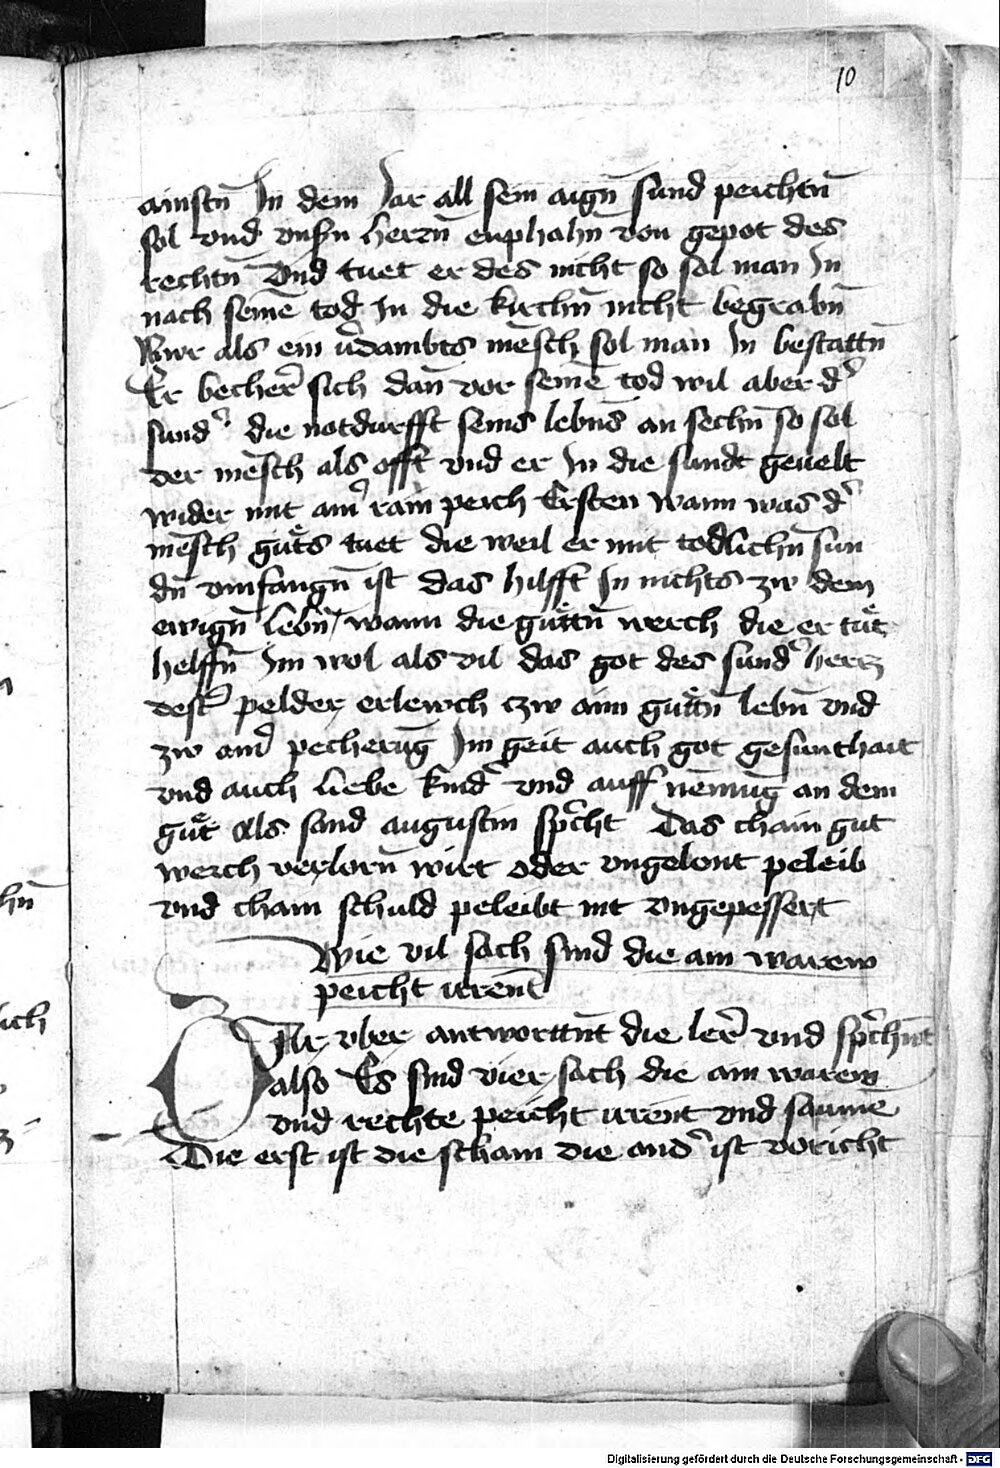 10
ainstn̄ In dem Jar all sein aign̄ sund peichtn̄
sol vnd vnsn̄ herrn̄ enphahn̄ von gepot des
rechtn̄ Vnd tuet er des nicht so sol man In
nach seinē tod In die kirchn̄ nicht begrabn̄
Nwr als ein v̄dambts mēsch sol man In bestattn̄
Er becher̄ sich dan̄ vor seinē tod wil aber d'
sund' die notdurfft seins lebn̄s an sechn̄ so sol
der mēsch als offt vnd er In die sundt geuelt
wider mit ain' rain peich Ersten wann was d'
mēsch gůts tuet die weil er mit todlichn̄ sun
dn̄ vmfangn̄ ist das hilfft In nichts zw dem
ewign̄ lebn̄ / wann die gůtn̄ werch die er tůt
helffn̄ Im wol als vil das got des sund' hertz
dest' pelder erlewch czw aim gůtn̄ lebn̄ vnd
zw ain' pecherūg Im geit auch got gesunthait
vnd auch liebe kind' vnd auff nēmūg an dem
gůt Als sand augustin sp'cht Das chain gut
werch verlorn̄ wirt oder vngelont peleib
vnd chain schuld peleibt nit vngepessert
Wie vil sach sind die ain warew
peicht irrent
Hie vber antwortn̄t die ler̄ vnd sp'chn̄t
also Es sind vier sach die ain warew
vnd rechte peicht irrent vnd saumē
Die erst ist die scham die and' ist voricht